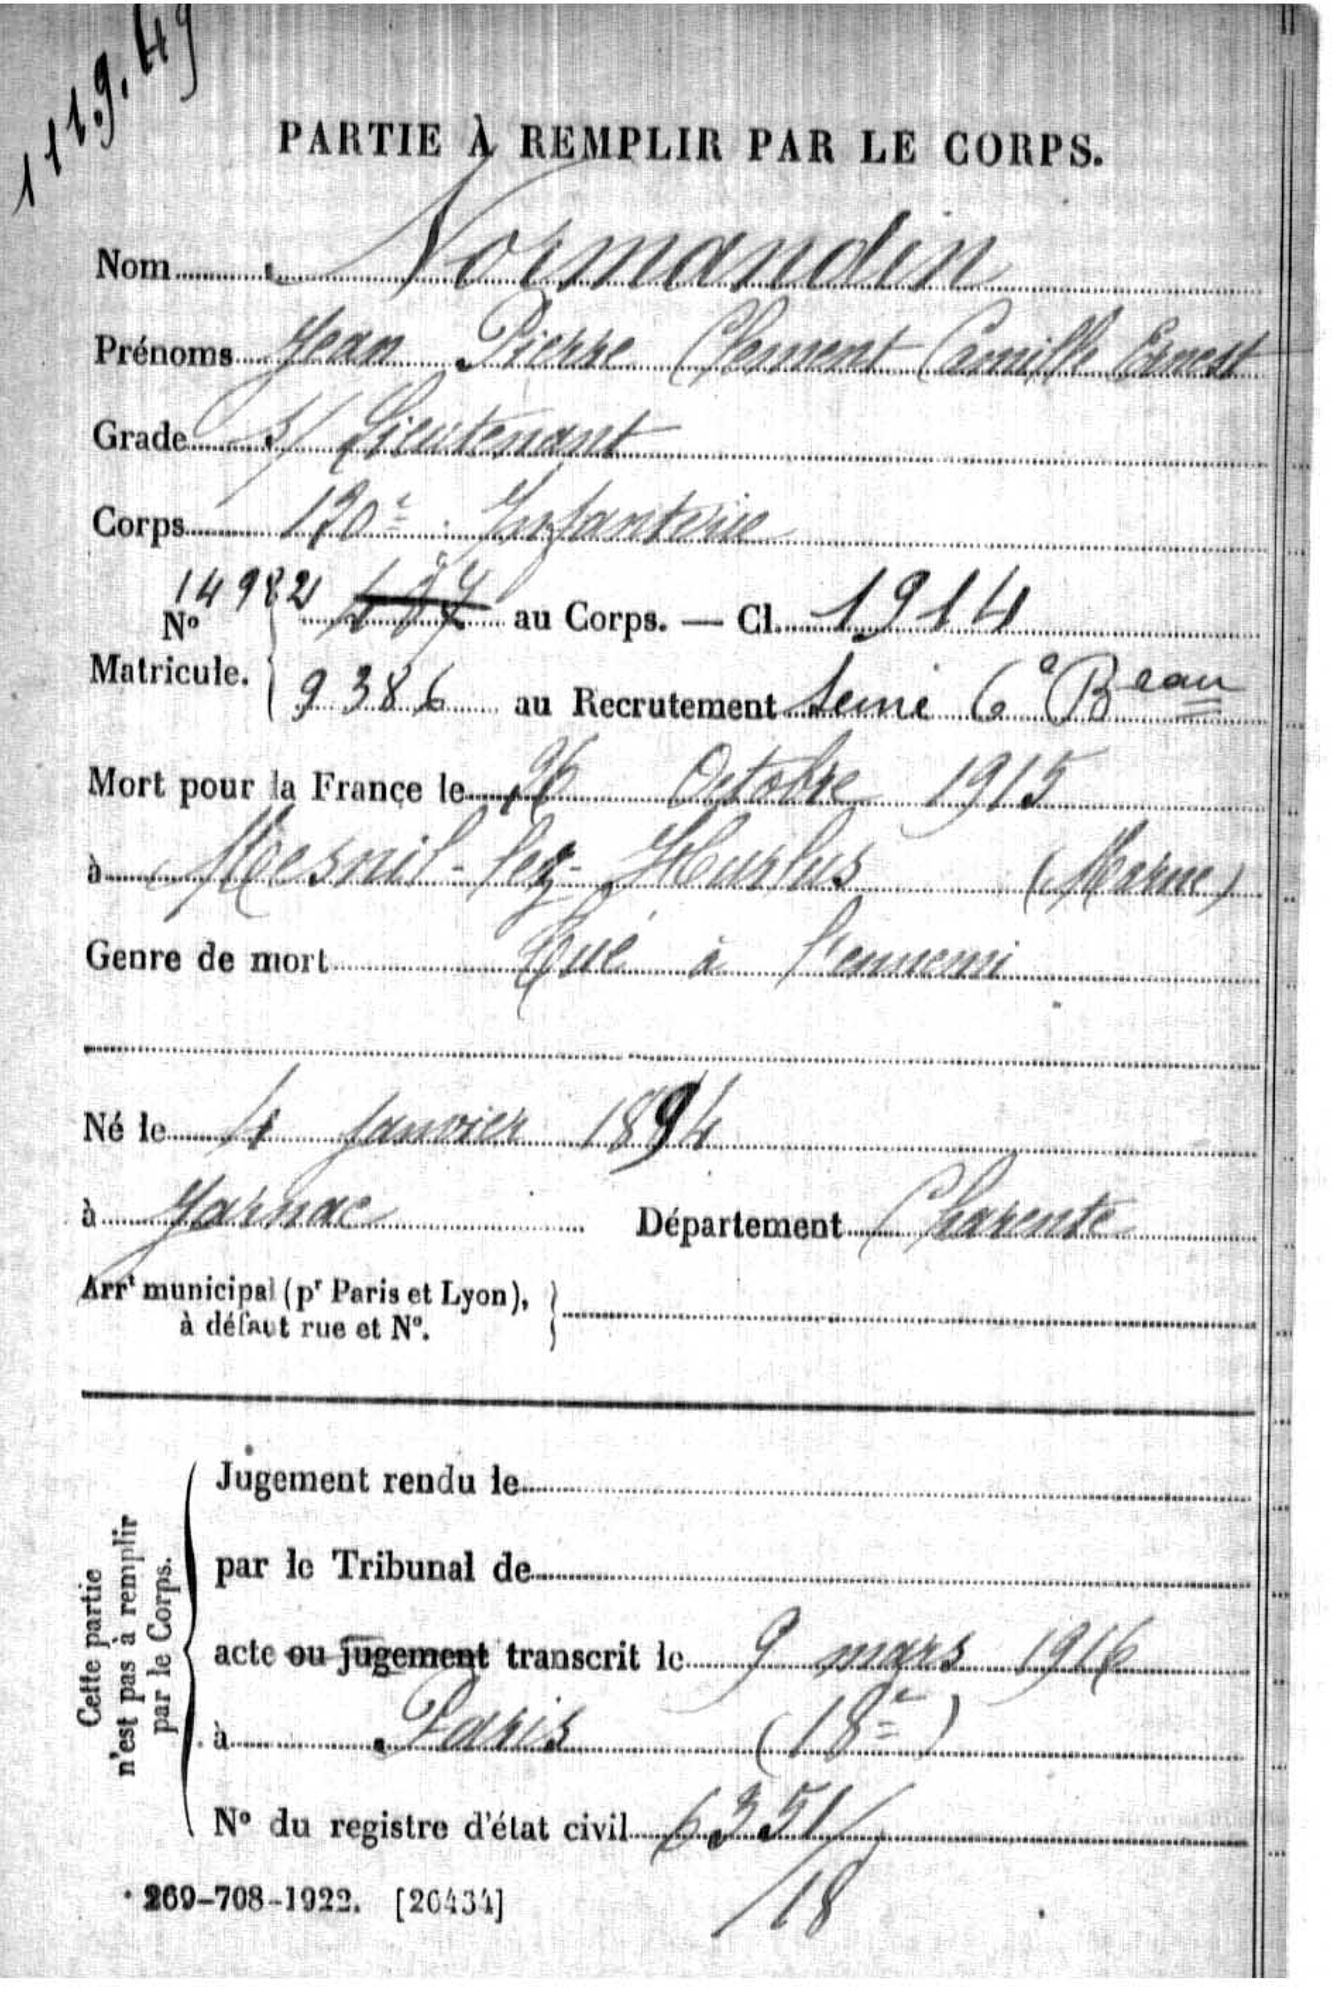 1119.49
PARTIE À REMPLIR PAR LE CORPS.
Nom Normandin
Prénoms Jean Pierre Clement Camille Ernest
Grade s/ Lieutenant
Corps 170e Infanterie
14982 au Corps. — Cl. 1914
N°
Matricule. 9386 au Recrutement Seine 6e Beau
Mort pour la France le 26 Octobre 1915
à Mesnil-lez-Hurlus (Marne)
Genre de mort Tué à l'ennemi
Né le 4 Janvier 1894
à Jarnac Département Charente
Arrt municipal (pr Paris et Lyon),
à défaut rue et N°.
Cette partie
n'est pas à remplir
par le Corps.
Jugement rendu le
par le Tribunal de
acte ou jugement transcrit le 9 mars 1916
à Paris (18e)
N° du registre d'état civil 6351/
/18
269-708-1922. [26434]